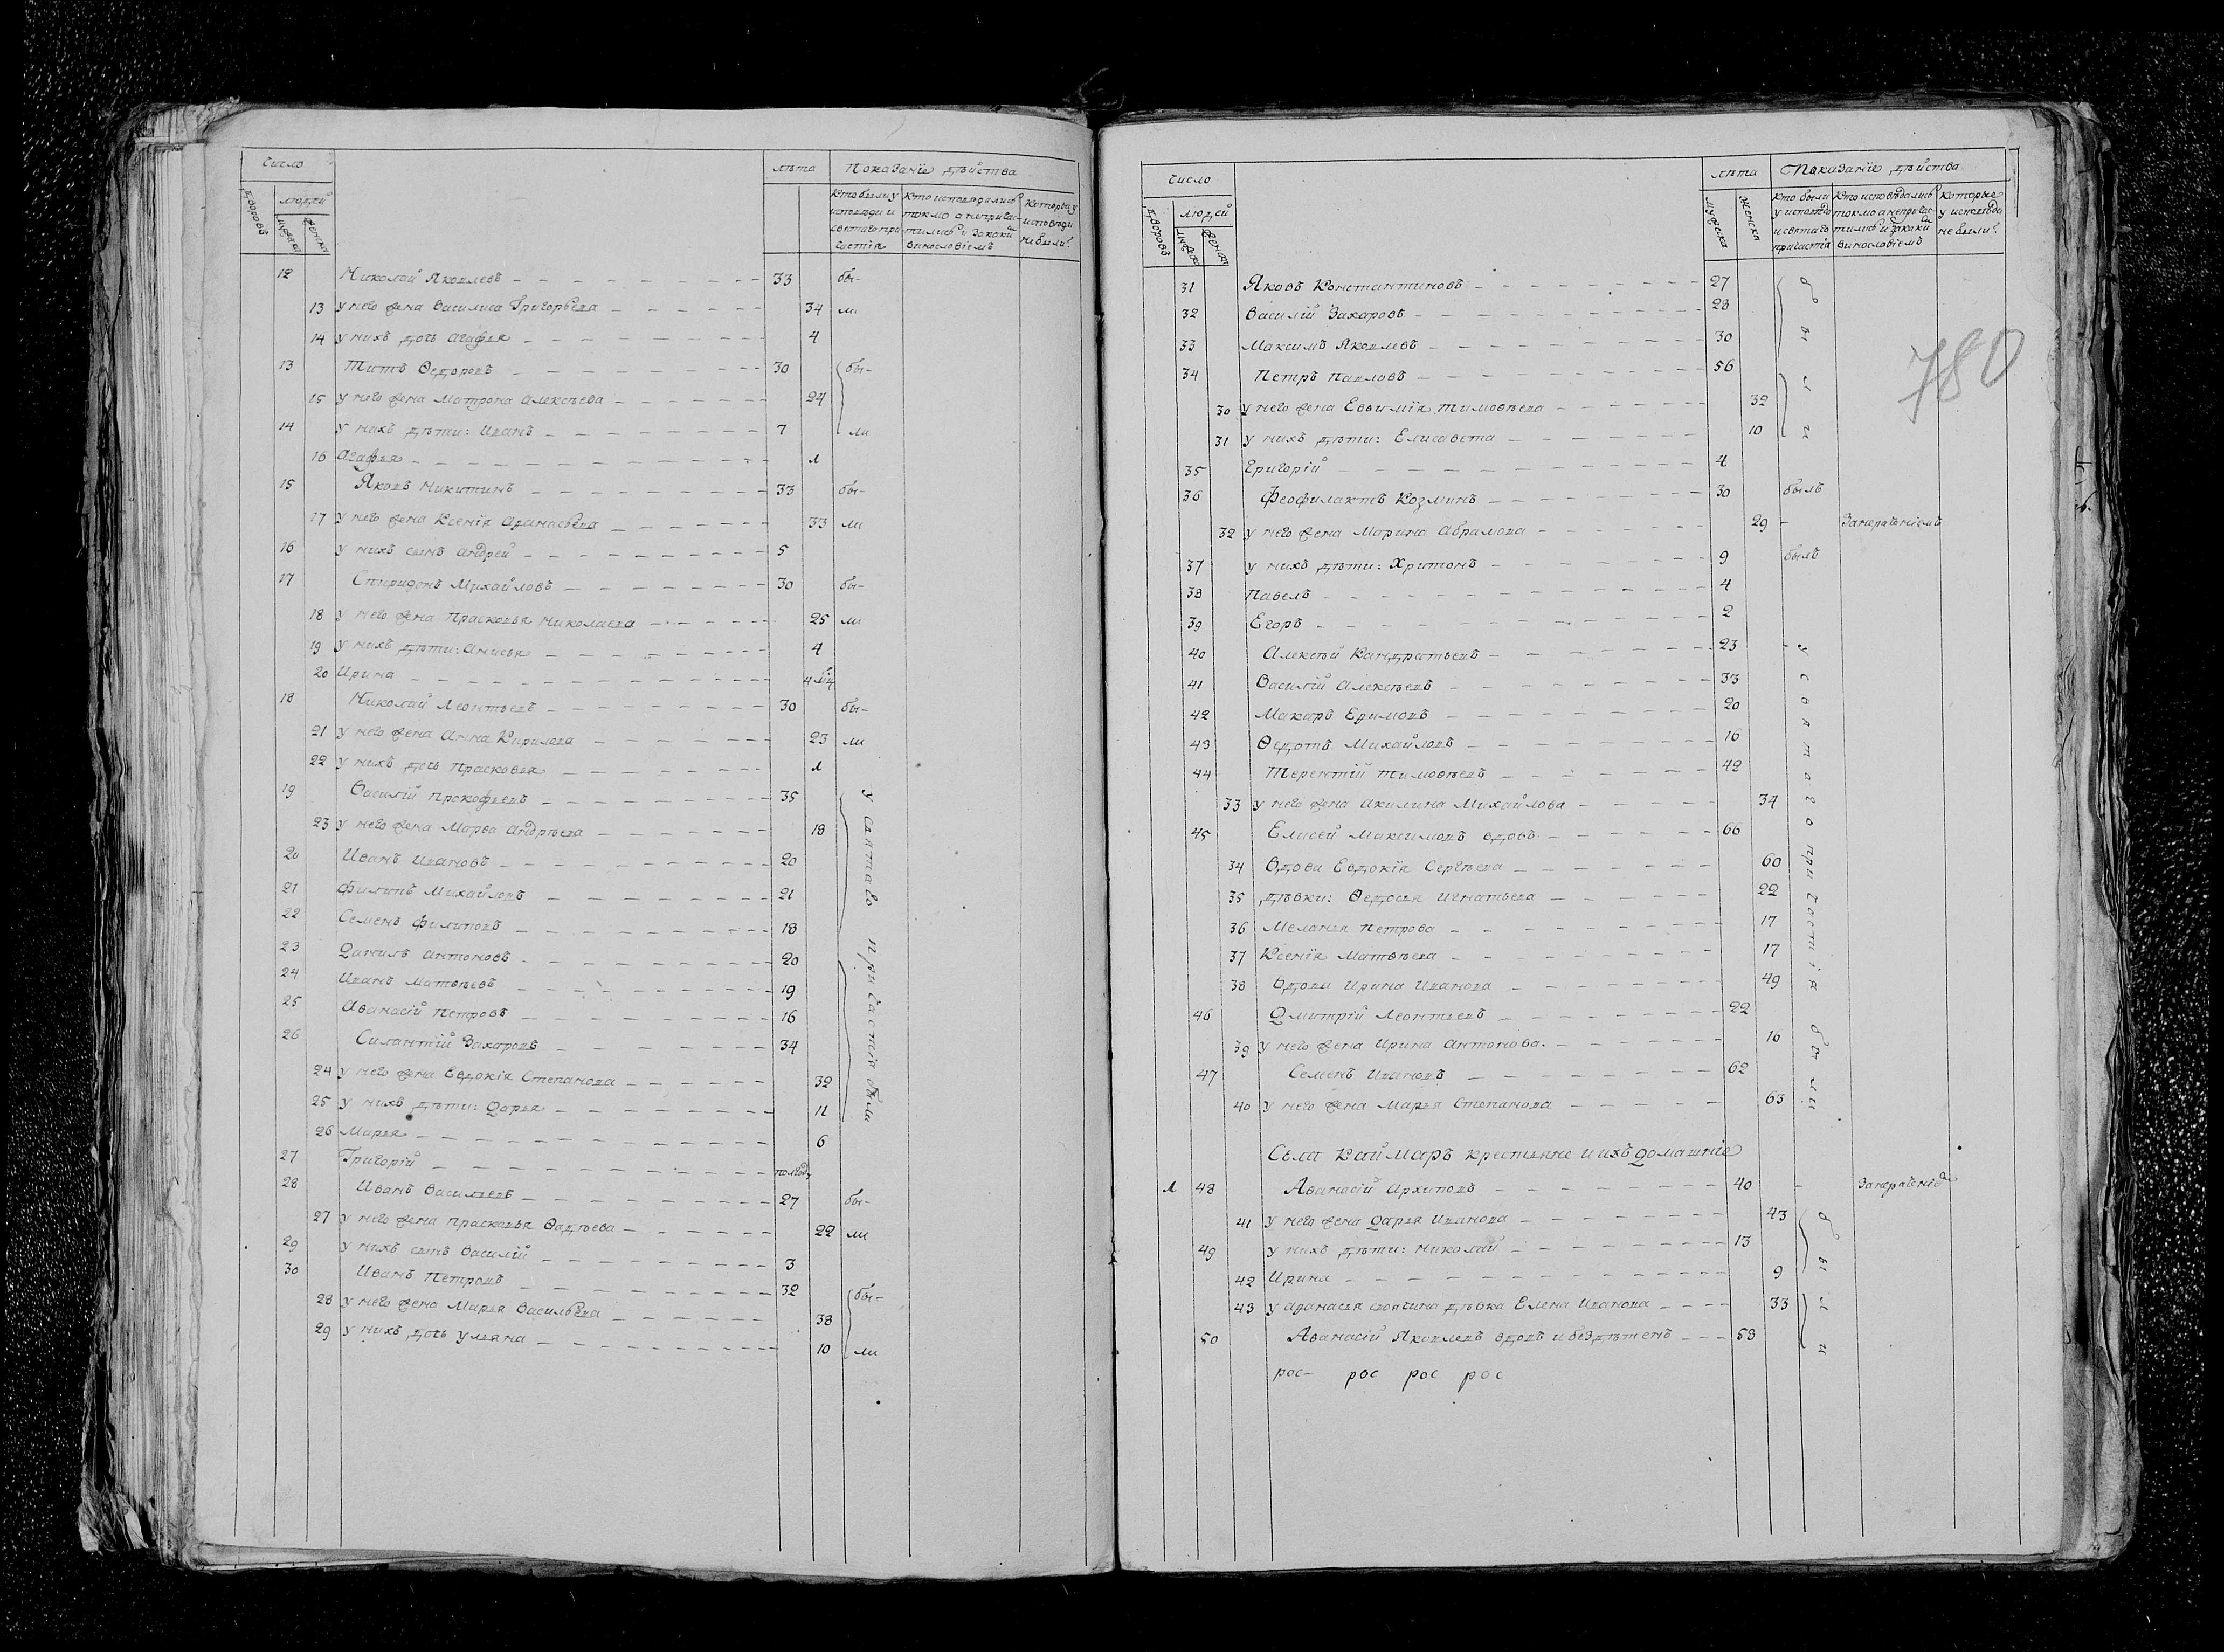 Число
лѣта Показаніе дѣйства
дворовъ людей
мужска женска
кто были у исповѣди и святаго причастія
кто исповѣдались токмо а непричастились и за каким винословіемъ
которыи у исповѣди не были?
12 Николай Яковлевъ 33 бы-
13 у него жена Василиса Григорьева 34 ли
14 у нихъ дочь Агафья 4
13 Титъ Ѳедоровъ 30 бы-
15 у него жена Матрона Алексѣева 24
14 у нихъ дѣти: Иванъ 7 ли
16 Агафья 1
15 Яковъ Никитинъ 33 бы-
17 у него жена Ксенія Аѳанасьева 33 ли
16 у нихъ сынъ Андрей 5
17 Спиридонъ Михайловъ 30 бы-
18 у него жена Прасковья Николаева 25 ли
19 у нихъ дѣти: Анисья 4
20 Ирина
18 Николай Леонтьевъ 30 бы-
21 у него жена Анна Кирилова 23 ли
22 у нихъ дочь Прасковья 1
19 Василій Прокофьевъ 35 у святаго причастія были
23 у него жена Марѳа Андрѣева 18
20 Иванъ Ивановъ 20
21 Филипъ Михайловъ 21
22 Семенъ Филиповъ 18
23 Данилъ Антоновъ 20
24 Иванъ Матвѣевъ 19
25 Аѳанасій Петровъ 16
26 Силантій Захаровъ 34
24 у него жена Евдокія Степанова 32
25 у нихъ дѣти: Дарья 11
26 Марья 6
27 Григорій полгода
28 Иванъ Васильевъ 27 бы-
27 у него жена Прасковья Ѳадѣева 22 ли
29 у нихъ сынъ Василій 3
30 Иванъ Петровъ 32 бы-
28 у него жена Марья Васильева 38
29 у нихъ дочь Ульяна 10 ли
число
лѣта Показаніе дѣйства
дворовъ людей
мужска женска
кто были у исповѣди и святаго причастія
кто исповѣдались токмо а непричастились и за каким винословіемъ
которые у исповѣди не были?
780
31 Яковъ Константиновъ 27 были
32 Василій Захаровъ 28
33 Максимъ Яковлевъ 30
34 Петръ Павловъ 56
30 у него жена Евѳимія Тимоѳѣева 32
31 у нихъ дѣти: Елисавета 10
35 Григорій 4
36 Феофилактъ Козминъ 30 былъ
32 у него жена Марина Абрамова 29 - Занерѣніемъ
37 у нихъ дѣти: Хритонъ 9 былъ
38 Павелъ 4
39 Егоръ 2
40 Алексѣй Кандратьевъ 23 у святаго причастія были
41 Василій Алексѣевъ 33
42 Макаръ Ефимовъ 20
43 Ѳедотъ Михайловъ 16
44 Терентій Тимоѳѣевъ 42
33 у него жена Акилина Михайлова 34
45 Елисей Максимовъ вдовъ 66
34 Вдова Евдокія Сергѣева 60
35 дѣвки: Ѳедосья Игнатьева 22
36 Меланья Петрова 17
37 Ксенія Матвѣева 17
38 Вдова Ирина Иванова 49
46 Дмитрій Леонтьевъ 22
39 у него жена Ирина Антонова. 16
47 Семенъ Ивановъ 62
40 у него жена Марья Степанова 63
Села Каймаръ крестьяне и ихъ домашніе
1 48 Аѳанасій Архиповъ 40 -
41 у него жена Дарья Иванова 43 были
49 у нихъ дѣти: Николай 13
42 Ирина 9
43 у Аѳанасья своячина дѣвка Елена Иванова 33
50 Аѳанасій Яковлевъ вдовъ и бездѣтенъ 58
рос- рос рос рос